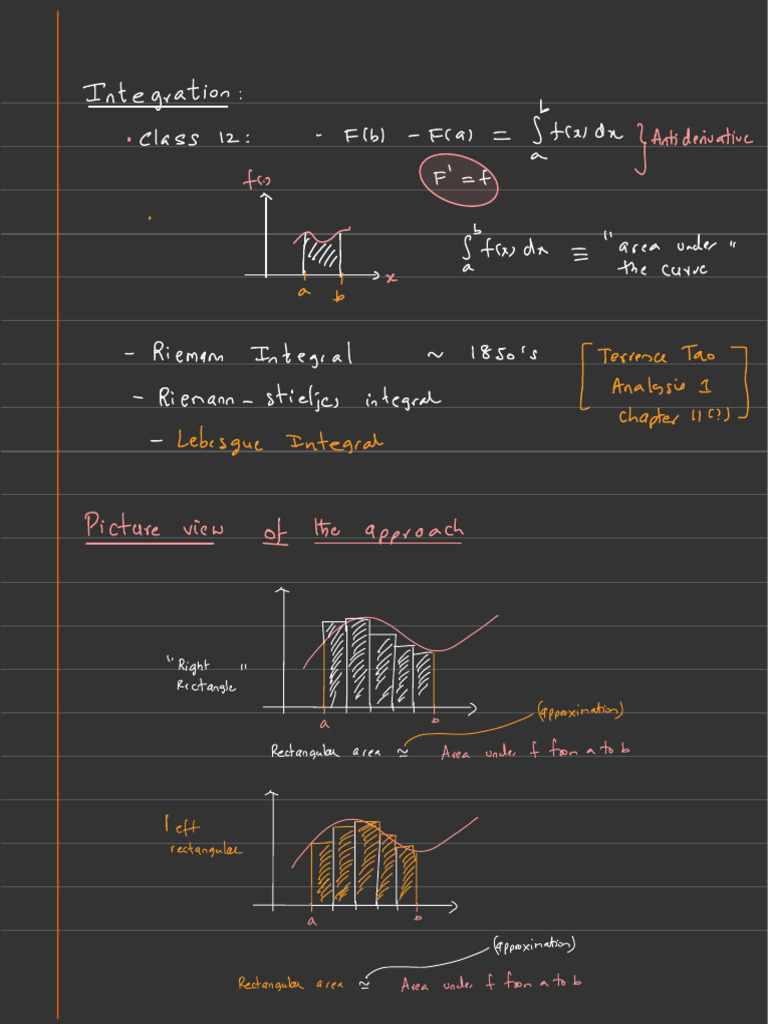 Integration:
• Class 12: - F(b) - F(a) = ∫_a^b f(x) dx } Antiderivative
F' = f
f(.)
∫_a^b f(x) dx ≡ "area under
the curve"
x
a b
- Riemann Integral ~ 1850's
- Riemann - Stieljes integral
- Lebesgue Integral
[Terrence Tao
Analysis 1
Chapter 11(?)]
Picture view of the approach
"Right
Rectangle"
a b
(approximation)
Rectangular area ≃ Area under f from a to b
left
rectangular
a b
(approximation)
Rectangular area ≃ Area under f from a to b